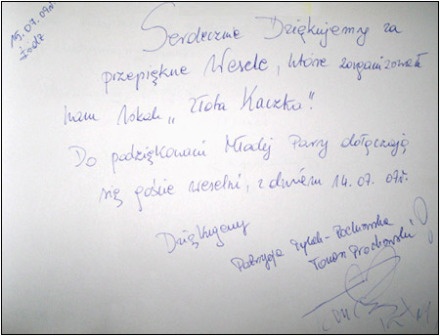 15.07.09r.
Łódź
Serdecznie Dziękujemy za
przepiękne Wesele, które zorganizował
nam lokal „Złota Kaczka".
Do podziękowań Młodej Pary dołączają
się goście weselni, z dniem 14.07.09r.
Dziękujemy
Patrycja
Tomasz Prochowski